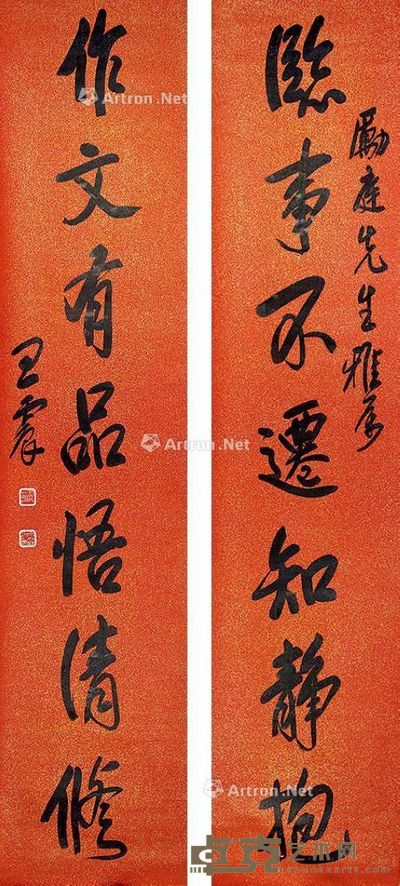 勵庭先生雅屬
臨事不遷知靜抱
作文有品悟清修
王震
Artron.Net
Artron.Net
Artron.Net
Artron.Net